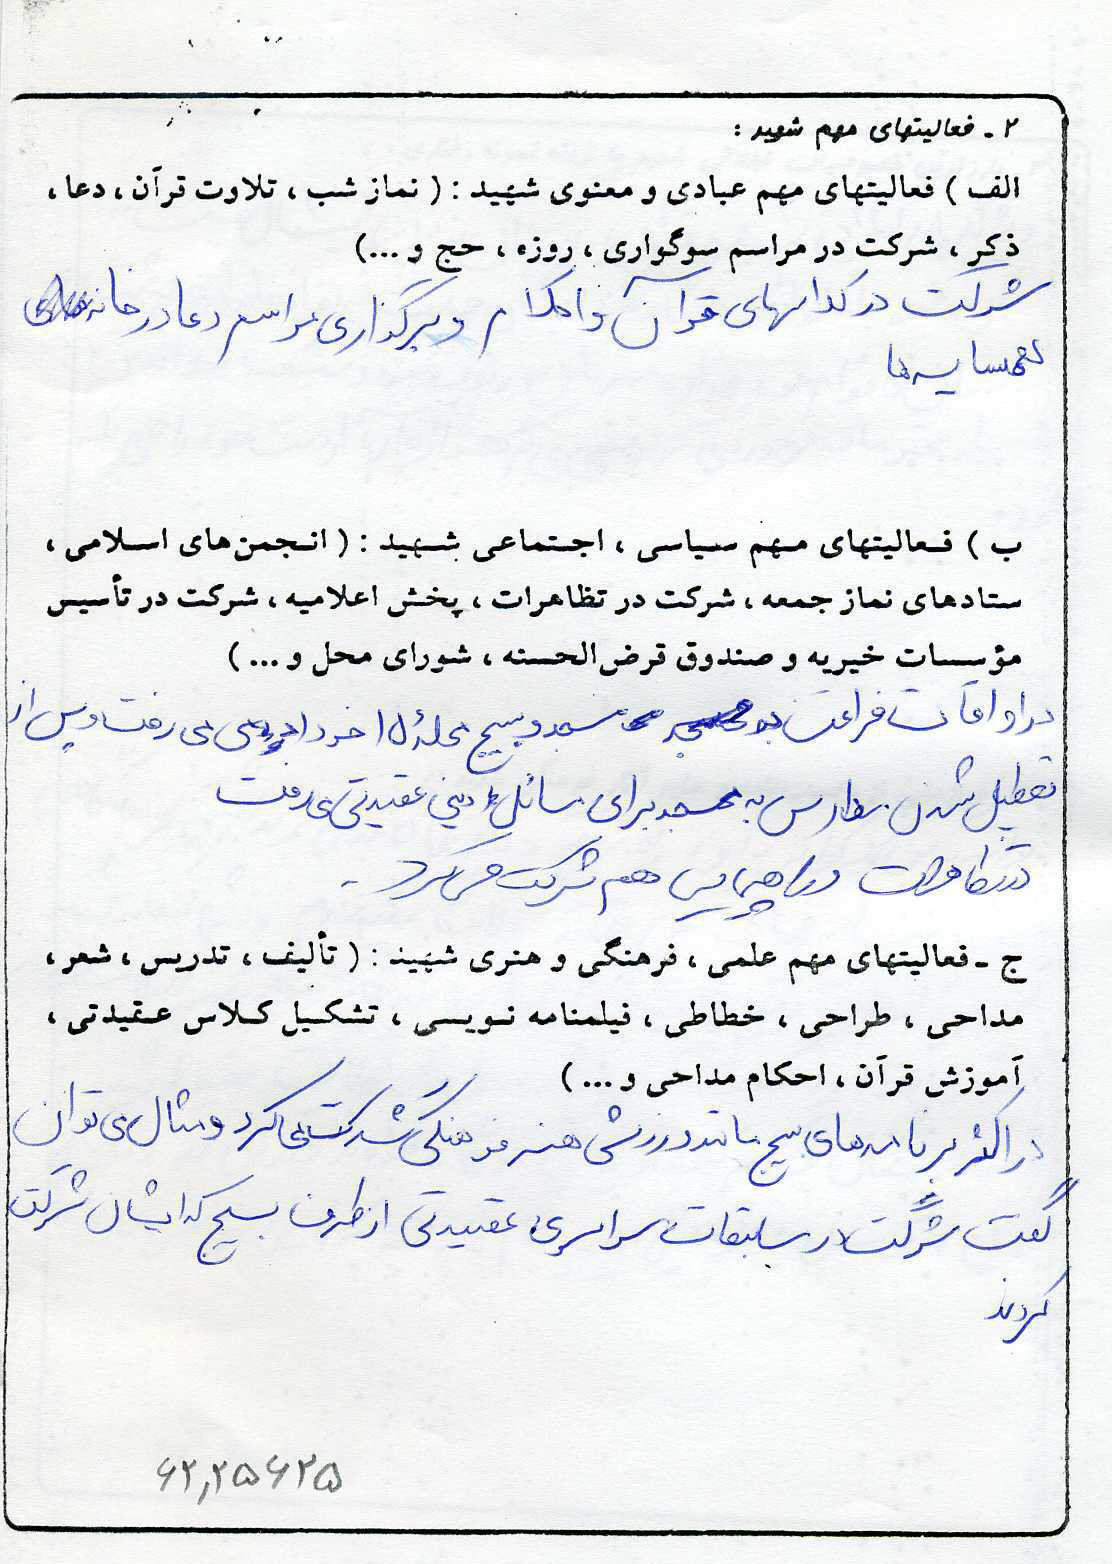 ۲ ـ فعالیتهای مهم شهید :
الف ) فعالیتهای مهم عبادی و معنوی شهید : ( نماز شب ، تلاوت قرآن ، دعا ،
ذکر ، شرکت در مراسم سوگواری ، روزه ، حج و ...)
شرکت در کلاسهای قرآن و احکام و برگزاری مراسم دعا در خانه
همسایه ها
ب ) فعالیتهای مهم سیاسی ، اجتماعی شهید : ( انجمن‌های اسلامی ،
ستادهای نماز جمعه ، شرکت در تظاهرات ، پخش اعلامیه ، شرکت در تأسیس
مؤسسات خیریه و صندوق قرض‌الحسنه ، شورای محل و ... )
در اوقات فراغت به مسجد و بسیج محلهٔ ۱۵ خرداد می رفت و پس از
تعطیل شدن مدارس به مسجد برای مسائل دینی عقیدتی می رفت
در تظاهرات و راهپیمایی هم شرکت می کرد .
ج ـ فعالیتهای مهم علمی ، فرهنگی و هنری شهید : ( تألیف ، تدریس ، شعر ،
مداحی ، طراحی ، خطاطی ، فیلمنامه نویسی ، تشکیل کلاس عقیدتی ،
آموزش قرآن ، احکام مداحی و ... )
در اکثر برنامه های بسیج مانند ورزشی هنر فرهنگی شرکت می کرد و مثال می توان
گفت شرکت در مسابقات سراسری عقیدتی از طرف بسیج که ایشان شرکت
کردند
۶۲,۲۵۶۲۵